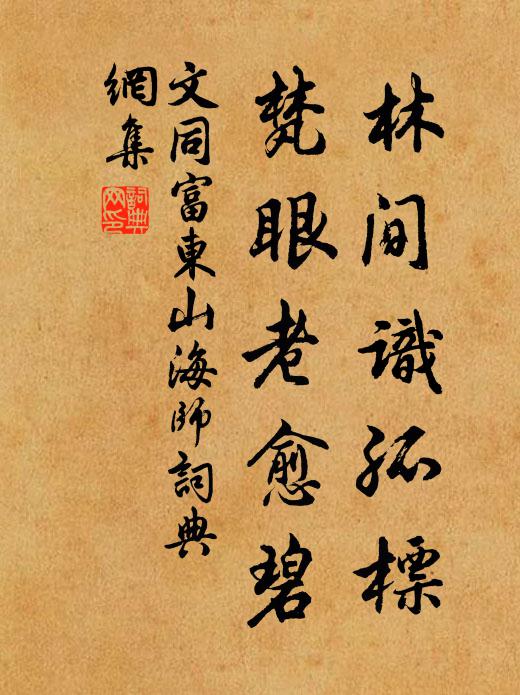 林間識孤標
梵眼老愈碧
文同富東山海師詞典
網集
詞典
网印